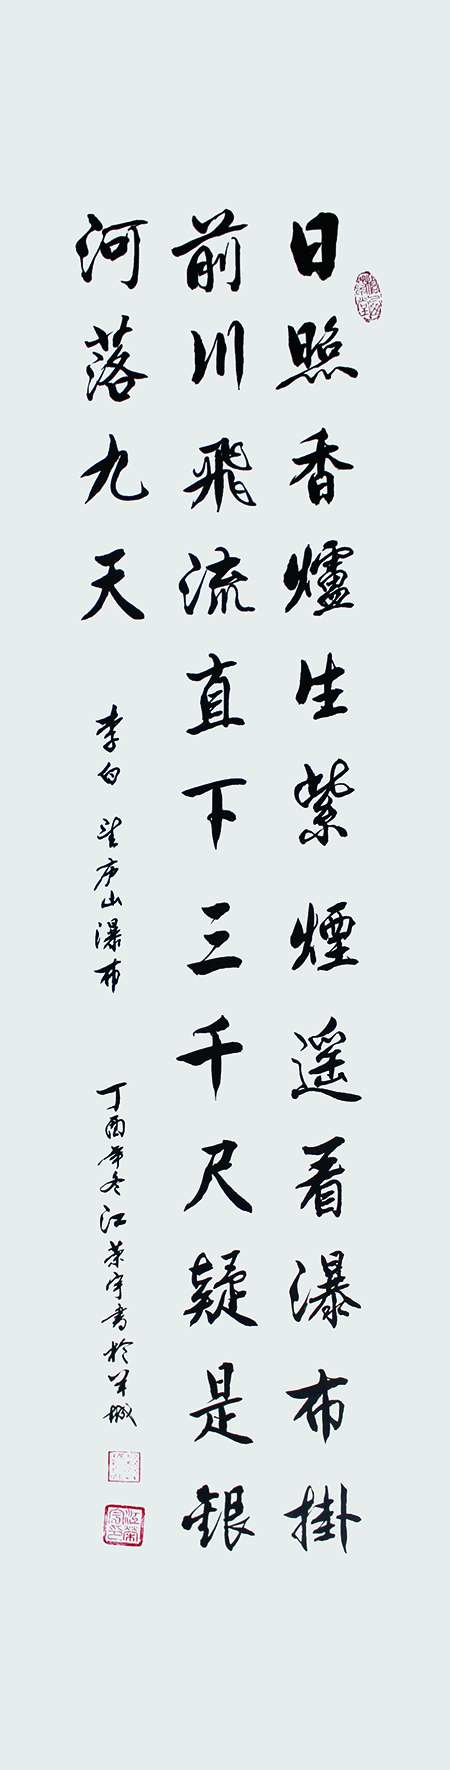 日照香爐生紫煙遥看瀑布掛
前川飛流直下三千尺疑是銀
河落九天
李白 望庐山瀑布
丁酉年冬江荣宇書於羊城